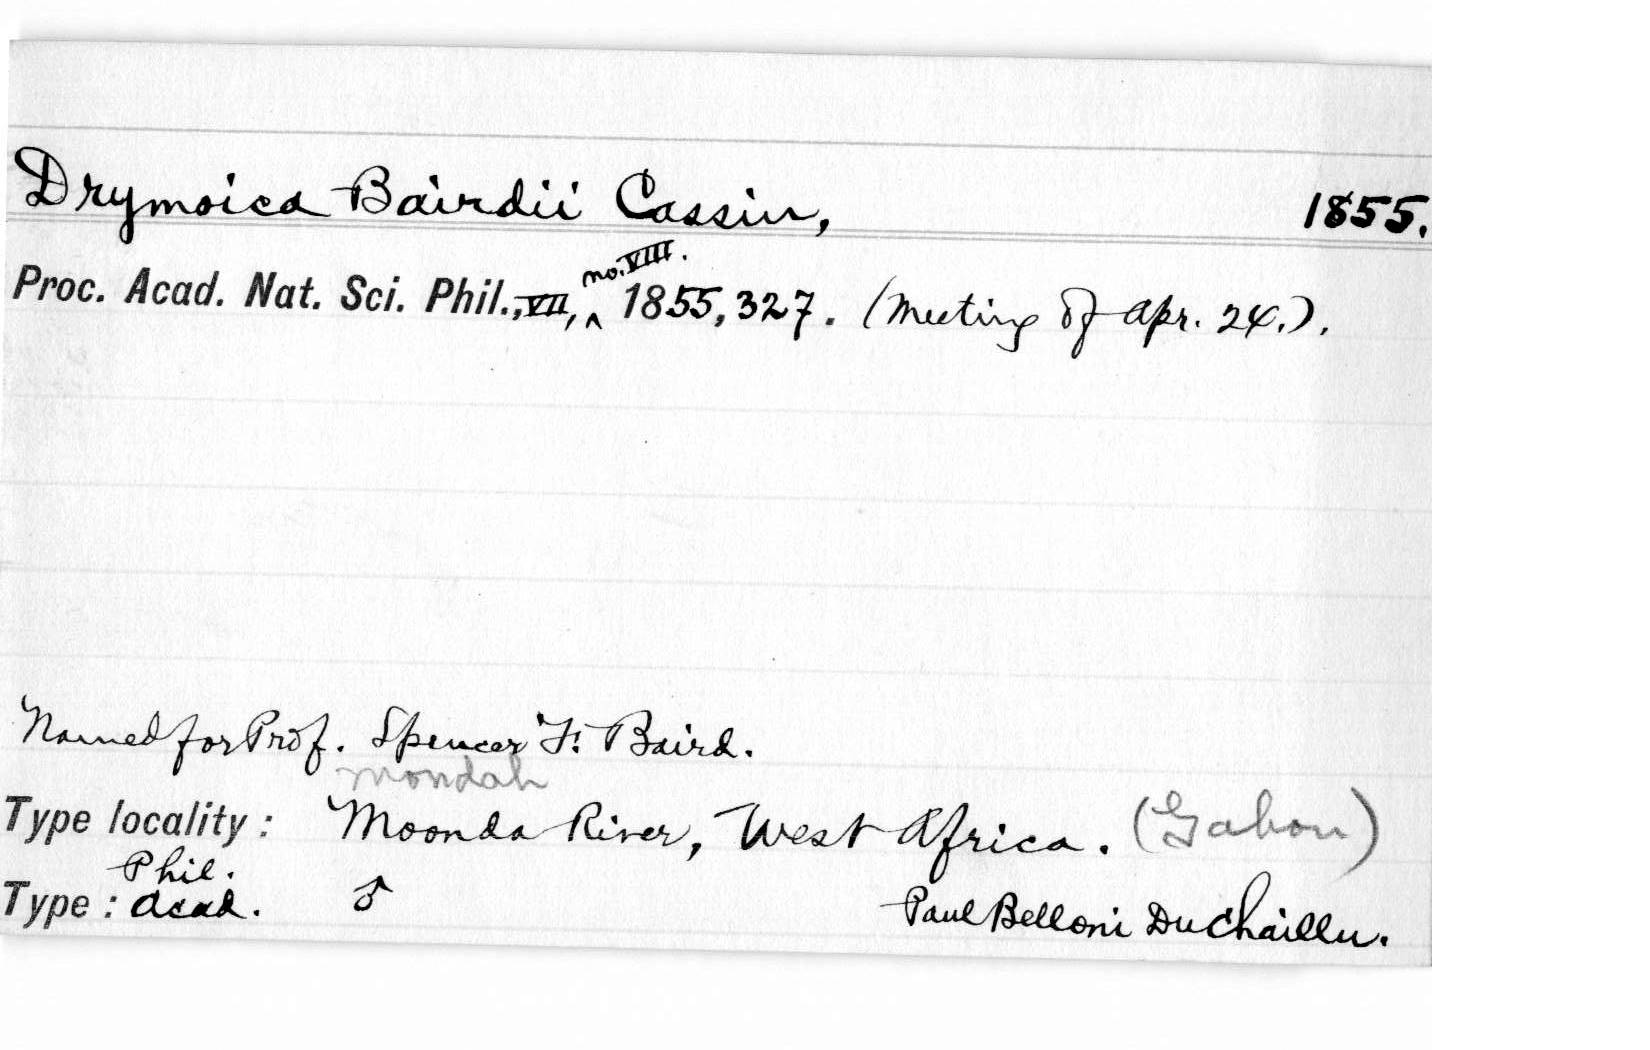 Drymoica Bairdii Cassin, 1855.
no. VIII.
Proc. Acad. Nat. Sci. Phil., VII, ^ 1855, 327. (Meeting of Apr. 24.).
Named for Prof. Spencer F. Baird.
Mondah
Type locality: Moonda River, West Africa. (Gabon)
Phil.
Type: Acad. ♂ Paul Belloni DuChaillu.